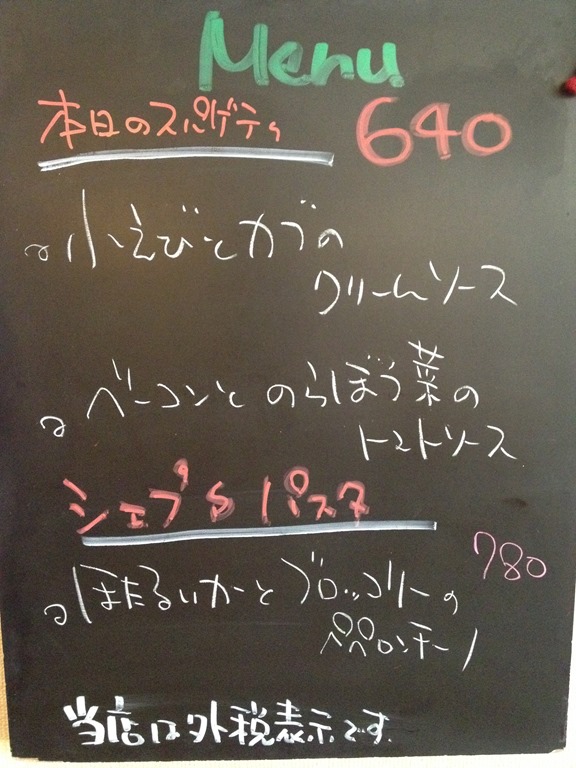 Menu
本日のスパゲティ 640
小えびとカブの
クリームソース
ベーコンとのらぼう菜の
トマトソース
シェフ'sパスタ
780
ほたるいかとブロッコリーの
ペペロンチーノ
当店は外税表示です.